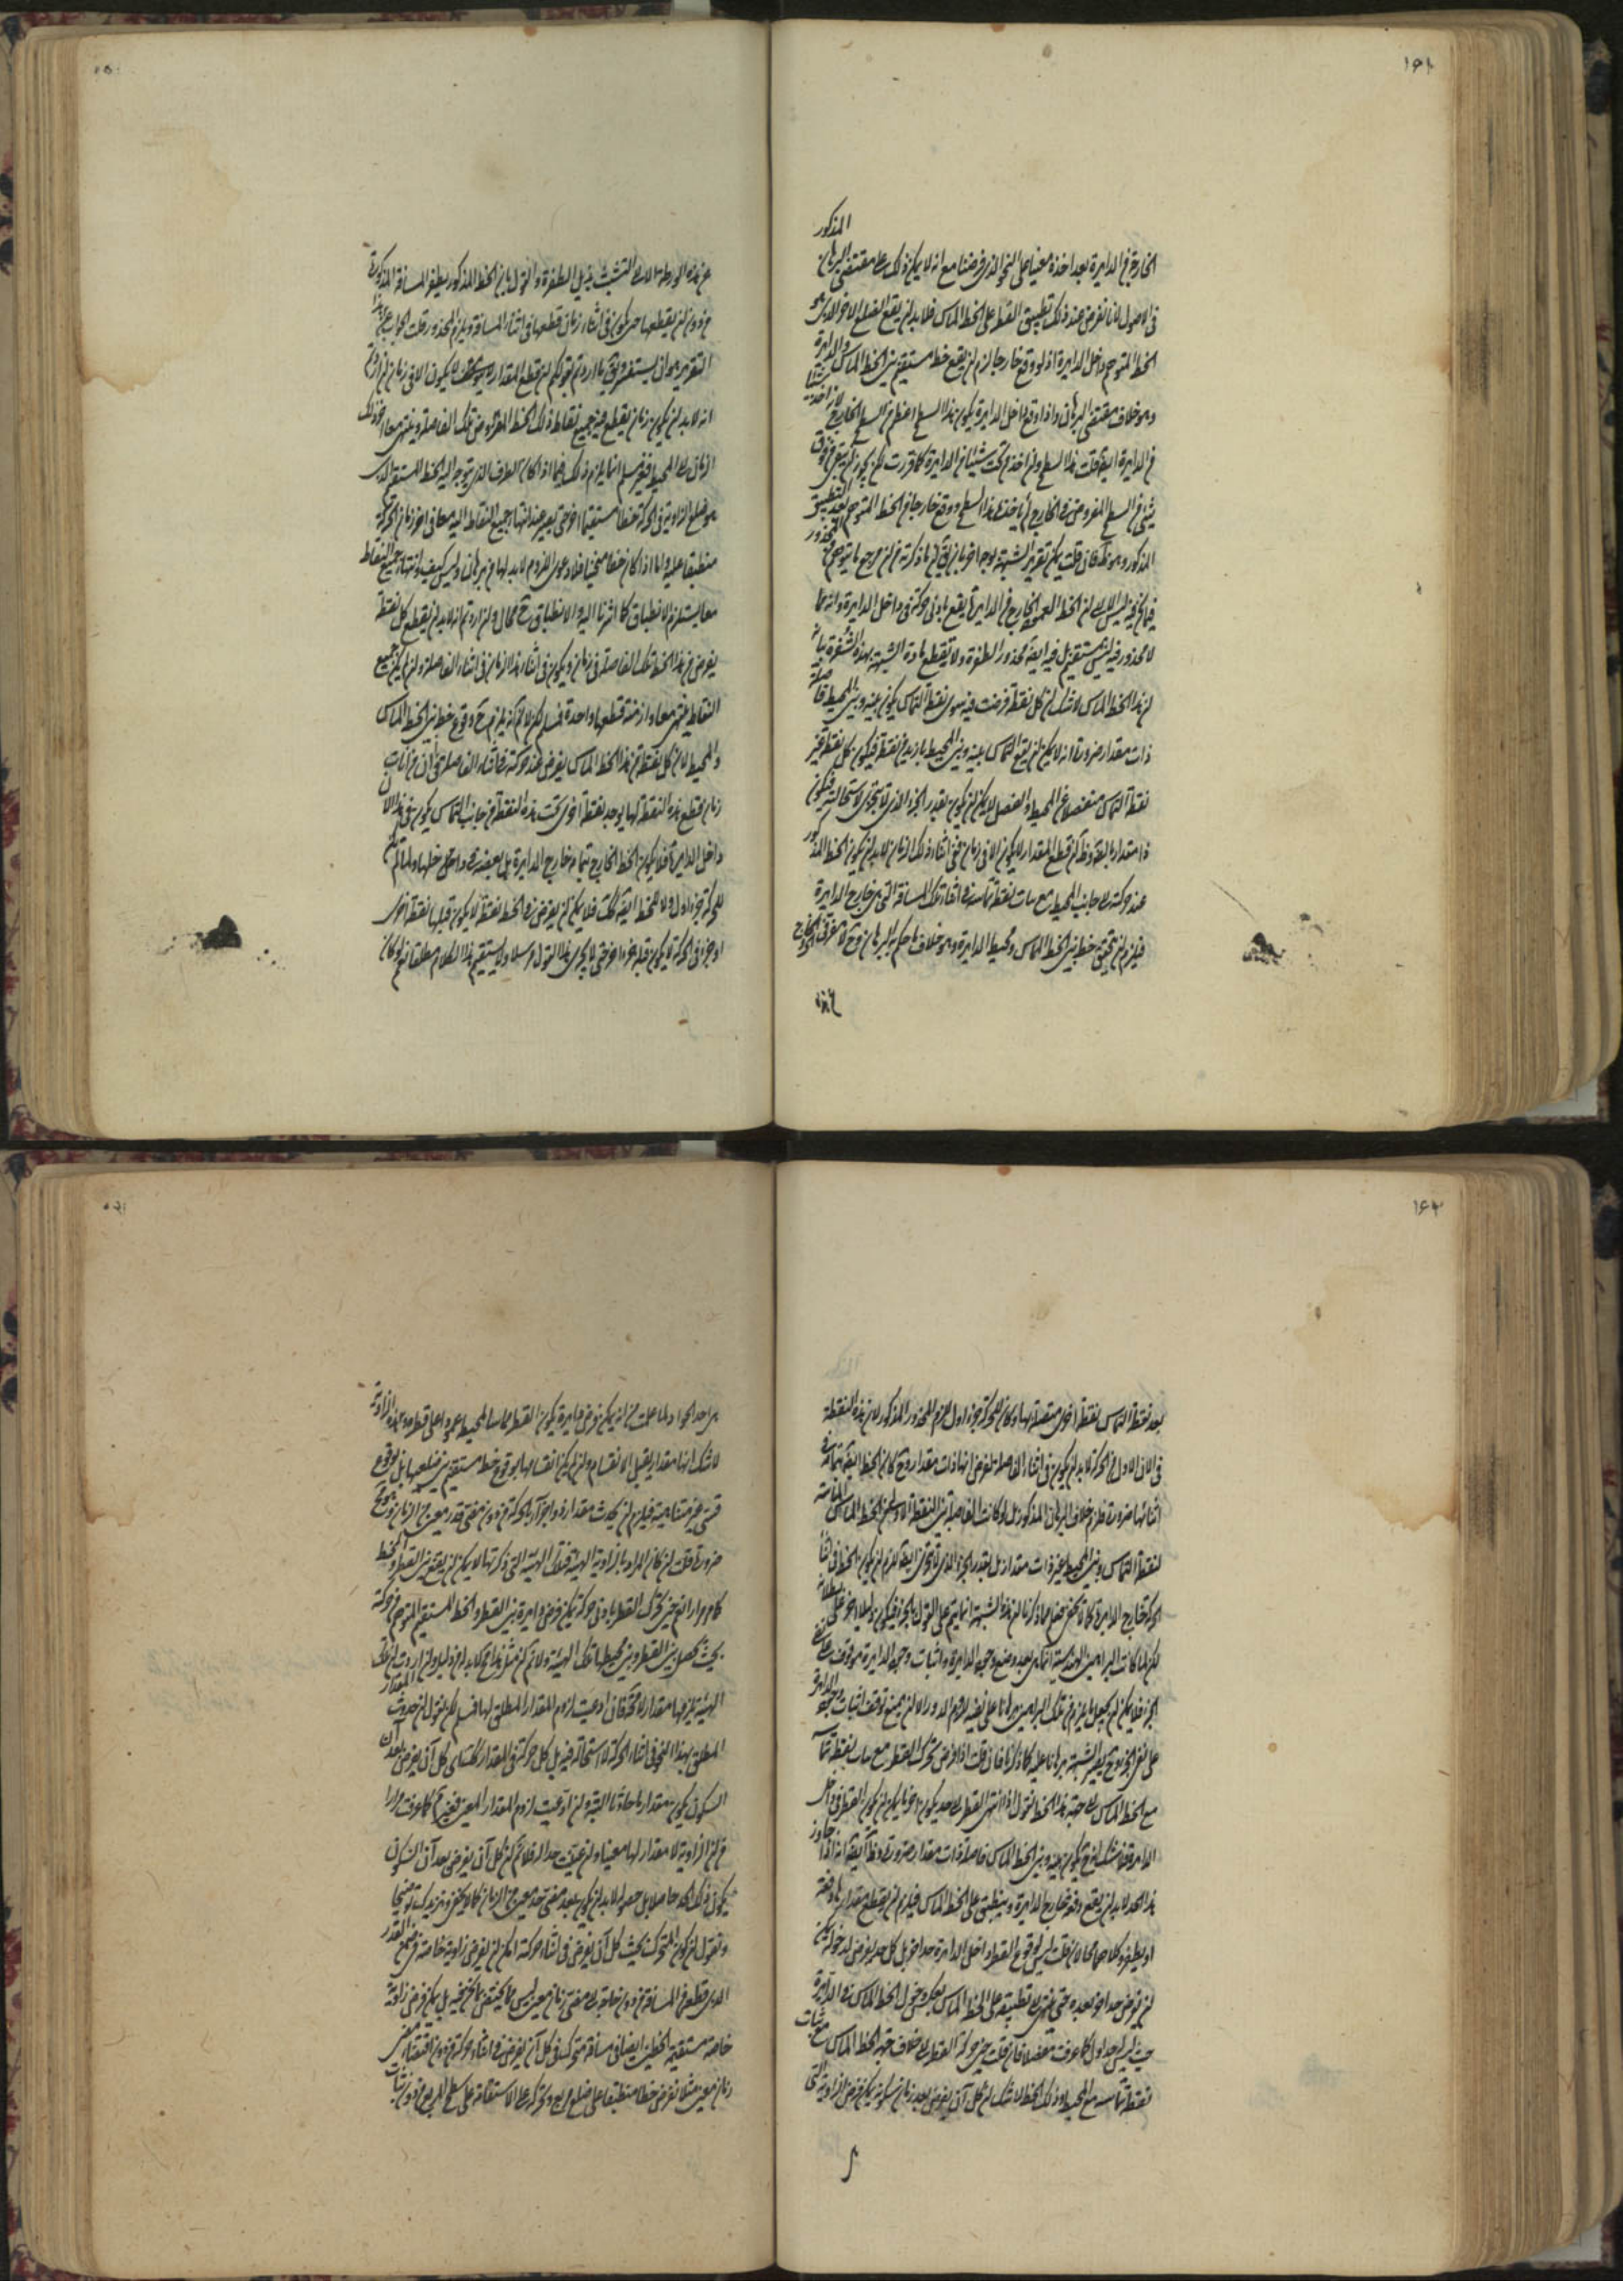 ۱۶۱
المذكور
الخارج فى الدايرة بعد اخذه معينا على النحو الذى فرضنا مع انه لا يمكن ذلك على مقتضى البرهان
فى الاصول لانا نفرض عند ذلك تطبيق القطر على الخط المماس فلا بد ان يقع الضلع الاخر الذى هو
الخط المتوهم داخل الدايرة اذ لو وقع خارجا لزم ان يقع خط مستقيم بين الخط المماس والدايرة
وهو خلاف مقتضى البرهان واذا وقع داخل الدايرة يكون هذا السطح اعظم من السطح الخارج
من الدايرة ايضا قلت هذا السطح وان اخذ تحت شيئا من الدايرة كما قررت لكن يجوز ان يبقى
شىء من السطح المفروض فى الخارج لم ياخذه هذا السطح ووقع خارجا من الخط المتوهم بعد التطبيق
المذكور وهو ظ فان قلت يمكن تقرير الشبهة بوجه اخر بان يق ما ذكرته من
ان الخط العمود الخارج من الدايرة يقع بادنى حركة فى داخل الدايرة وانه مما
لا محذور فيه ليس بمستقيم بل فيه ايضا محذور الطفرة ولا تقطع مادة الشبهة بهذه
ان هذا الخط المماس لا شك ان كل نقطة فرضت فيه سوى نقطة التماس يكون بينه وبين المحيط فاصلة
ذات مقدار ضرورة انه لا يمكن ان يقع التماس بينه وبين المحيط بازيد من نقطة فيكون كل نقطة غير
نقطة التماس منفصلا عن المحيط والفصل لا يمكن ان يكون بقدر الجزء الذى لا يتجزى لاستحالته فيكون
ذا مقدار البتة وظ ان قطع المقدار لا يكون الا فى زمان ففى اثناء ذلك الزمان لا بد ان يكون الخط المذكور
عند حركته الى جانب المحيط مع ثبات نقطة تماسه فى اثناء تلك المسافة التى هى خارج الدايرة
فيلزم ان يتحقق خط بين الخط المماس ومحيط الدايرة وهو خلاف ما حكم به البرهان وح لا مفر
عن هذه الورطة الا التشبث بذيل الطفرة والقول بان الخط المذكور يطفر المسافة المذكورة
من دون ان يقطعها حتى يكون فى اثناء زمان قطعها فى اثناء المسافة ويلزم المحذور قلت الجواب عن هذا
التقرير هو ان يستفسر ويق ما اردتم بقولكم ان قطع المقدار لا يكون الا فى زمان ان اردتم
انه لا بد ان يكون زمان يقطع فيه جميع نقاط ذلك الخط المفروض تلك الفاصلة وينتهى معا اخر ذلك
الزمان الى المحيط فغير مسلم انما يلزم ذلك فيما اذا كان الطرف الذى يتوجه اليه الخط المستقيم الذى
هو ضلع الزاوية فى الحركة خطا مستقيما اخر حتى يصير عند انتهاء جميع النقاط اليه معا فى اخر زمان الحركة
منطبقا عليه واما اذا كان خطا منحنيا فلا ودعوى اللزوم لا بد لها من برهان وليس كيف وانتهاء جميع النقاط
معا يستلزم الانطباق كما اشرنا اليه والانطباق ح محال وان اردتم انه لا بد ان يقطع كل نقطة
يفرض من هذا الخط تلك الفاصلة فى زمان ويكون فى اثناء هذا الزمان فى اثناء الفاصلة وان لم يكن جميع
النقاط ينتهى معا وازمنة قطعها واحدة فمسلم لكن لا نم انه يلزم ح وقوع خط بين الخط المماس
والمحيط لان كل نقطة من هذا الخط المماس يفرض عند حركته فى اثناء الفاصلة فى اى آن من آنات
زمان قطع هذه النقطة لها يوجد نقطة اخرى تحت هذه النقطة من جانب التماس يكون فى هذا الان
داخل الدايرة فلا يكون الخط الخارج بتمامه خارج الدايرة بل بعضه فى داخل
للحركة جزء اول ولا للخط ايضا كذلك فلا يمكن ان يفرض فى الخط نقطة لا يكون قبلها نقطة اخرى
او جزء فى الحركة لا يكون قبله جزء اخر حتى لا يجرى هذا القول ولا يستقيم هذا الكلام مطلقا نعم لو كان
۱۶۲
بعد نقطة التماس نقطة اخرى متصلة بها وكان للحركة جزء اول للزم المحذور المذكور لان هذه النقطة
فى الان الاول من الحركة لا بد ان يكون فى اثناء الفاصلة لفرض انها ذات مقدار وح كان الخط ايضا بتمامه فى
اثنائها ضرورة فلزم خلاف البرهان المذكور بل لو كانت الفاصلة بين النقطة الاولى من الخط المماس
لنقطة التماس وبين المحيط غير ذات مقدار بل بقدر الجزء الذى لا يتجزى ايضا للزم ان يكون الخط فى اثناء
الحركة خارج الدايرة كما لا يخفى فعلم مما ذكرنا ان هذه الشبهة انما يتم على القول بالجزء فيكون دليلا اخر على بطلانه
لكن لما كانت البراهين الهندسية انما هى بعد وضع وجود الدايرة واثبات وجود الدايرة موقوف على نفى
الجزء فلا يمكن ان يجعل ما يلزم من تلك البراهين برهانا على نفيه للزوم الدور الا ان يمنع توقف اثبات وجود الدايرة
على نفى الجزء وح يصير الشبهة برهانا عليه كما ذكرنا فان قلت اذا فرض تحرك القطر مع ثبات نقطة تماسه
مع الخط المماس الى جهة هذا الخط فنقول اذا انتهى القطر الى حد يكون اخر ما يمكن ان يكون القطر فى داخل
الدايرة فلا شك ان ح يكون بينه وبين الخط المماس فاصلة ذات مقدار ضرورة وظ ايضا انه اذا جاوز
هذا الحد لا بد ان يقع دفعة خارج الدايرة وينطبق على الخط المماس فيلزم ان يقطع مقدارا دفعة
او يطفر وكلاهما محالان قلت ليس لوقوع القطر داخل الدايرة حد اخر بل كل حد يفرض له يمكن
ان يفرض حد اخر بعده حتى ينتهى الى تطبيقه على الخط المماس بعكس دخول الخط المماس فى الدايرة
حيث ليس له حد اول كما عرفت مفصلا فان قلت حين حركة القطر الى خلاف جهة الخط المماس مع ثبات
نقطة تماسه مع المحيط وذلك الخط لا شك ان كل آن يفرض بعد زمان سكونه يمكن فرض الزاوية التى
هى احد الحواد لما علمت من انه يمكن فرض دايرة يكون القطر مماسا لمحيطها عمودا على قطرها وهذه الزاوية
لا شك انها مقدار يقبل الانقسام وان لم يكن انقسامها بوقوع خط مستقيم بين ضلعيها بل بوقوع
قسى غير متناهية فيلزم ان يحدث مقدار دو اجزاء بالحركة من دون مضى قدر معين من الزمان وهو مح
ضرورة قلت ان كان المراد بالزاوية الهيئة فتلك الهيئة التى ذكرتها لا يمكن ان يقع بين القطر والخط
كما مر مرارا نعم حين تحرك القطر بادنى حركة يمكن فرض دايرة بين القطر والخط المستقيم المتوهم من حركته
بحيث يحصل بين القطر وبين محيطها تلك الهيئة ولا نم ان مثل هذا مح لا بد له من دليل وان اردت ان تلك
الهيئة يلزمها مقدار لا محة فان ادعيت لزوم المقدار المطلق لها فمسلم لكن نقول ان حدوث المقدار
المطلق بهذا النحو فى اثناء الحركة لا استحالة فيه بل كل حركة فى المقدار كذلك اى كل آن يفرض بعد آن
السكون يكون مقدار ما حادثا البتة وان ادعيت لزوم المقدار المعين فغير مسلم كما عرفت مرارا
من ان الزاوية لا مقدار لها معينا وان عينت حدا له فلا نم ان كل آن يفرض بعد آن السكون
يكون ذلك الحد حاصلا بل حصوله لا بد ان يكون بعد مضى حد معين من الزمان كما لا يخفى ونزيدك توضيحا
ونقول ان كون المتحرك بحيث كل آن يفرض فى اثناء حركته امكن ان يفرض زاوية خاصة من جميع القدر
الذى قطع من المسافة من دون حاجة الى مضى زمان معين ليس مما يختص بما نحن فيه بل يمكن فرض زاوية
خاصة مستقيمة الخطين ايضا فى مسافة متحرك فى كل آن يفرض فى اثناء حركته من دون اقتضاء مضى
زمان معين مثلا نفرض خطا منطبقا على ضلع مربع وتحرك على الاستقامة على سطح المربع من دون ثبات